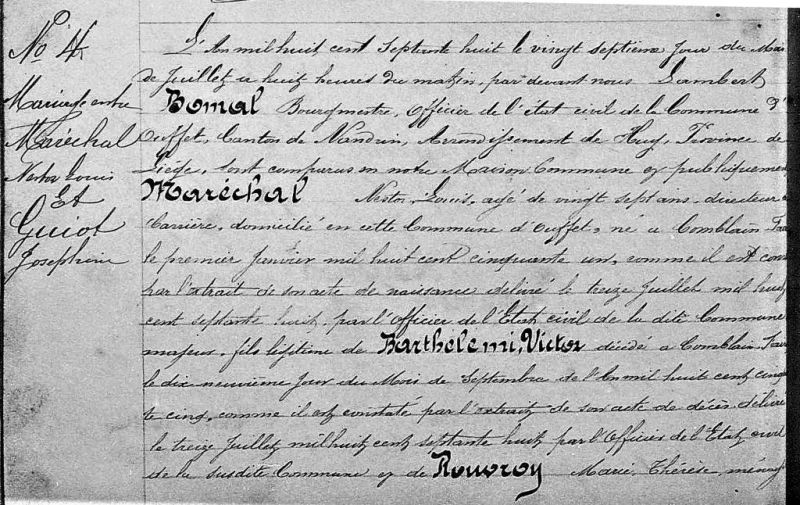 No 4
Mariage entre
Maréchal
Nestor Louis
Et
Guiot
Joséphine
L'An mil huit cent septante huit le vingt septième jour du Mois
de Juillet à huit heures du matin, par devant nous Lambert
Bomal Bourgmestre, Officier de l'état civil de la Commune d'
Ouffet, Canton de Nandrin, Arrondissement de Huy, Province de
Liége, sont comparus en notre Maison Commune et publiquement
Maréchal Nestor, Louis, agé de vingt sept ans, directeur
Carrière, domicilié en cette Commune d'Ouffet, né à Comblain
le premier Janvier mil huit cent cinquante un, comme il est
par l'extrait de son acte de naissance délivré le treize Juillet mil huit
cent septante huit, par l'Officier de l'Etat civil de la dite Commune
majeur, fils légitime de Barthelemi, Victor décédé à Comblain
le dix neuvième jour du Mois de Septembre de l'An mil huit cent
te cinq, comme il est constaté par l'extrait de son acte de décès délivré
le treize Juillet mil huit cent septante huit par l'Officier de l'Etat civil
de la susdite Commune et de Rouvroy Marie, Thérèse,